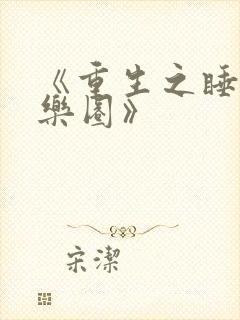 《重生之睡
樂園》
宋潔